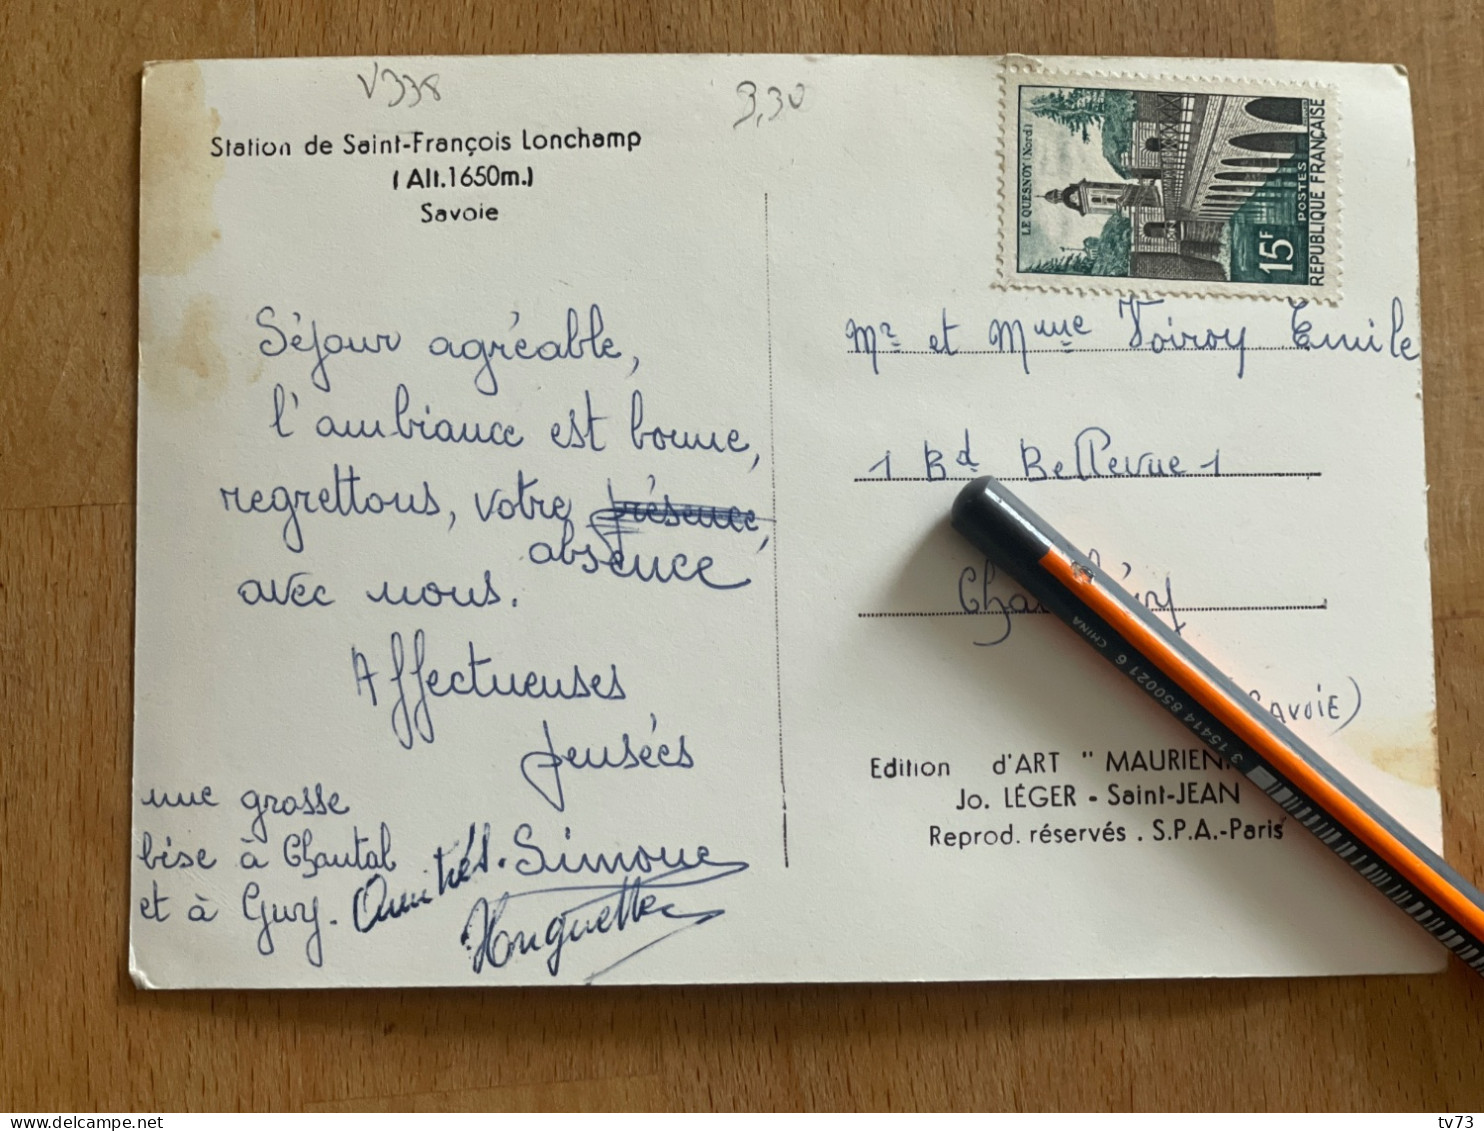 V338
3,30
Station de Saint-François Lonchamp
(Alt.1650m.)
Savoie
Séjour agréable,
l'ambiance est bonne,
regrettons, votre présence,
absence
avec nous.
Affectueuses
pensées
une grosse
bise à Chantal
et à Guy. Amitiés. Simone
Huguette
LE QUESNOY (Nord)
15F
POSTES
REPUBLIQUE FRANÇAISE
Mr et Mme Voiroy Emile
1 Bd Bellevue 1
(SAVOIE)
Edition d'ART " MAURIEN
Jo. LÉGER - Saint-JEAN
Reprod. réservés . S.P.A.-Paris
3 15414 850021 6 CHINA
tv73
www.delcampe.net